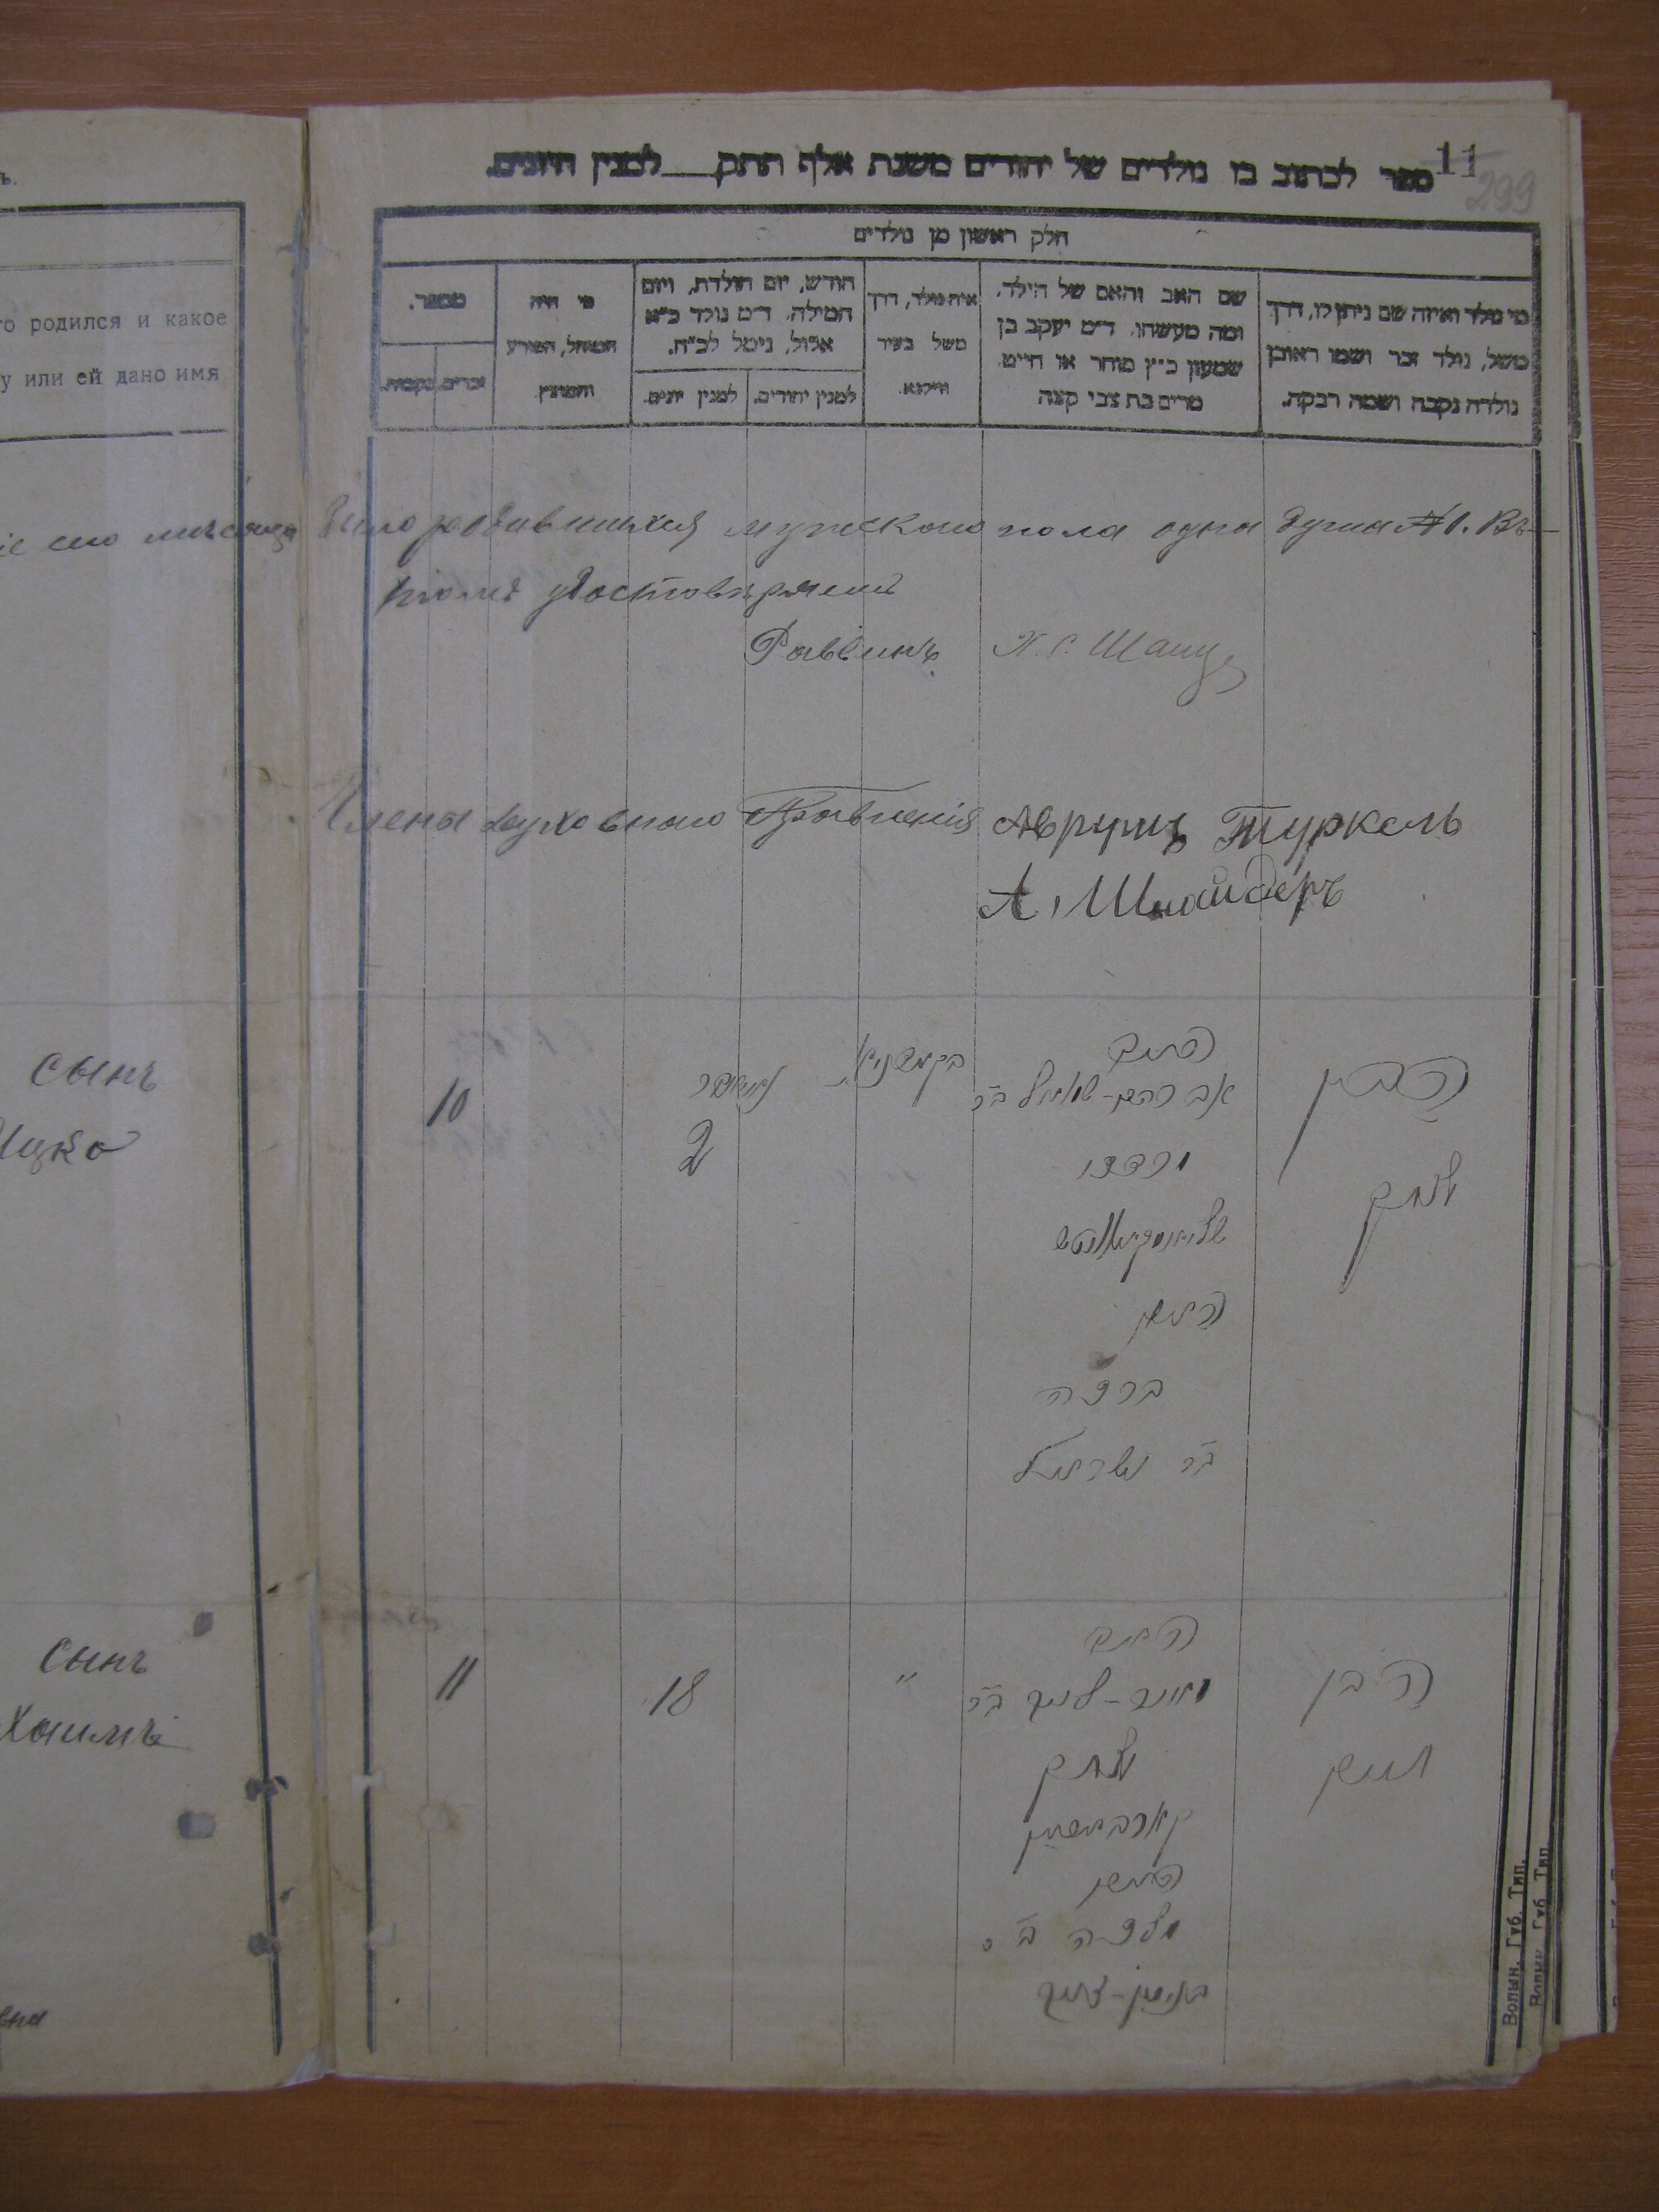 ъ.
го родился и какое
у или ей дано имя
сего мѣсяца
сынъ
Ицко
Сынъ
Хаимъ
вна
11
299
ספר לכתוב בו נולדים של יהודים משנת אלף תתק למנין היונים.
חלק ראשון מן נולדים
מי נולד ואיזה שם ניתן לו, דרך
משל, נולד זכר ושמו ראובן
נולדה נקבה ושמה רבקה.
שם האב והאם של הילד,
ומה מעשהו. ד״מ יעקב בן
שמעון כ״ץ סוחר או חייט.
מרים בת צבי קצה
איה נולד, דרך
משל בעיר
ווילנא.
חודש, יום הולדת, ויום
המילה. ד״מ נולד כ״א
אלול, נימל לכ״ח.
למנין יהודים.
למנין יונים.
מי היה
המוהל, הפורע
והמוצץ.
מספר.
זכרים.
נקבות.
было родившихся мужского пола одна душа №1. Въ
томъ удостовѣряемъ
Раввинъ Х. С. Шанц
Члены духовнаго Правленія Аврумъ Туркель
А. Шнайдеръ
הבן
יצחק
האב
אברהם-שמואל ב״ר
מרדכי
האם
ברכה
ב״ר ישראל
2
10
הבן
חיים
האב
ב״ר
יצחק
האם
מלכה ב״ר
בנימין-זאב
"
18
11
Волын. Губ. Тип.
Волын. Губ. Тип.